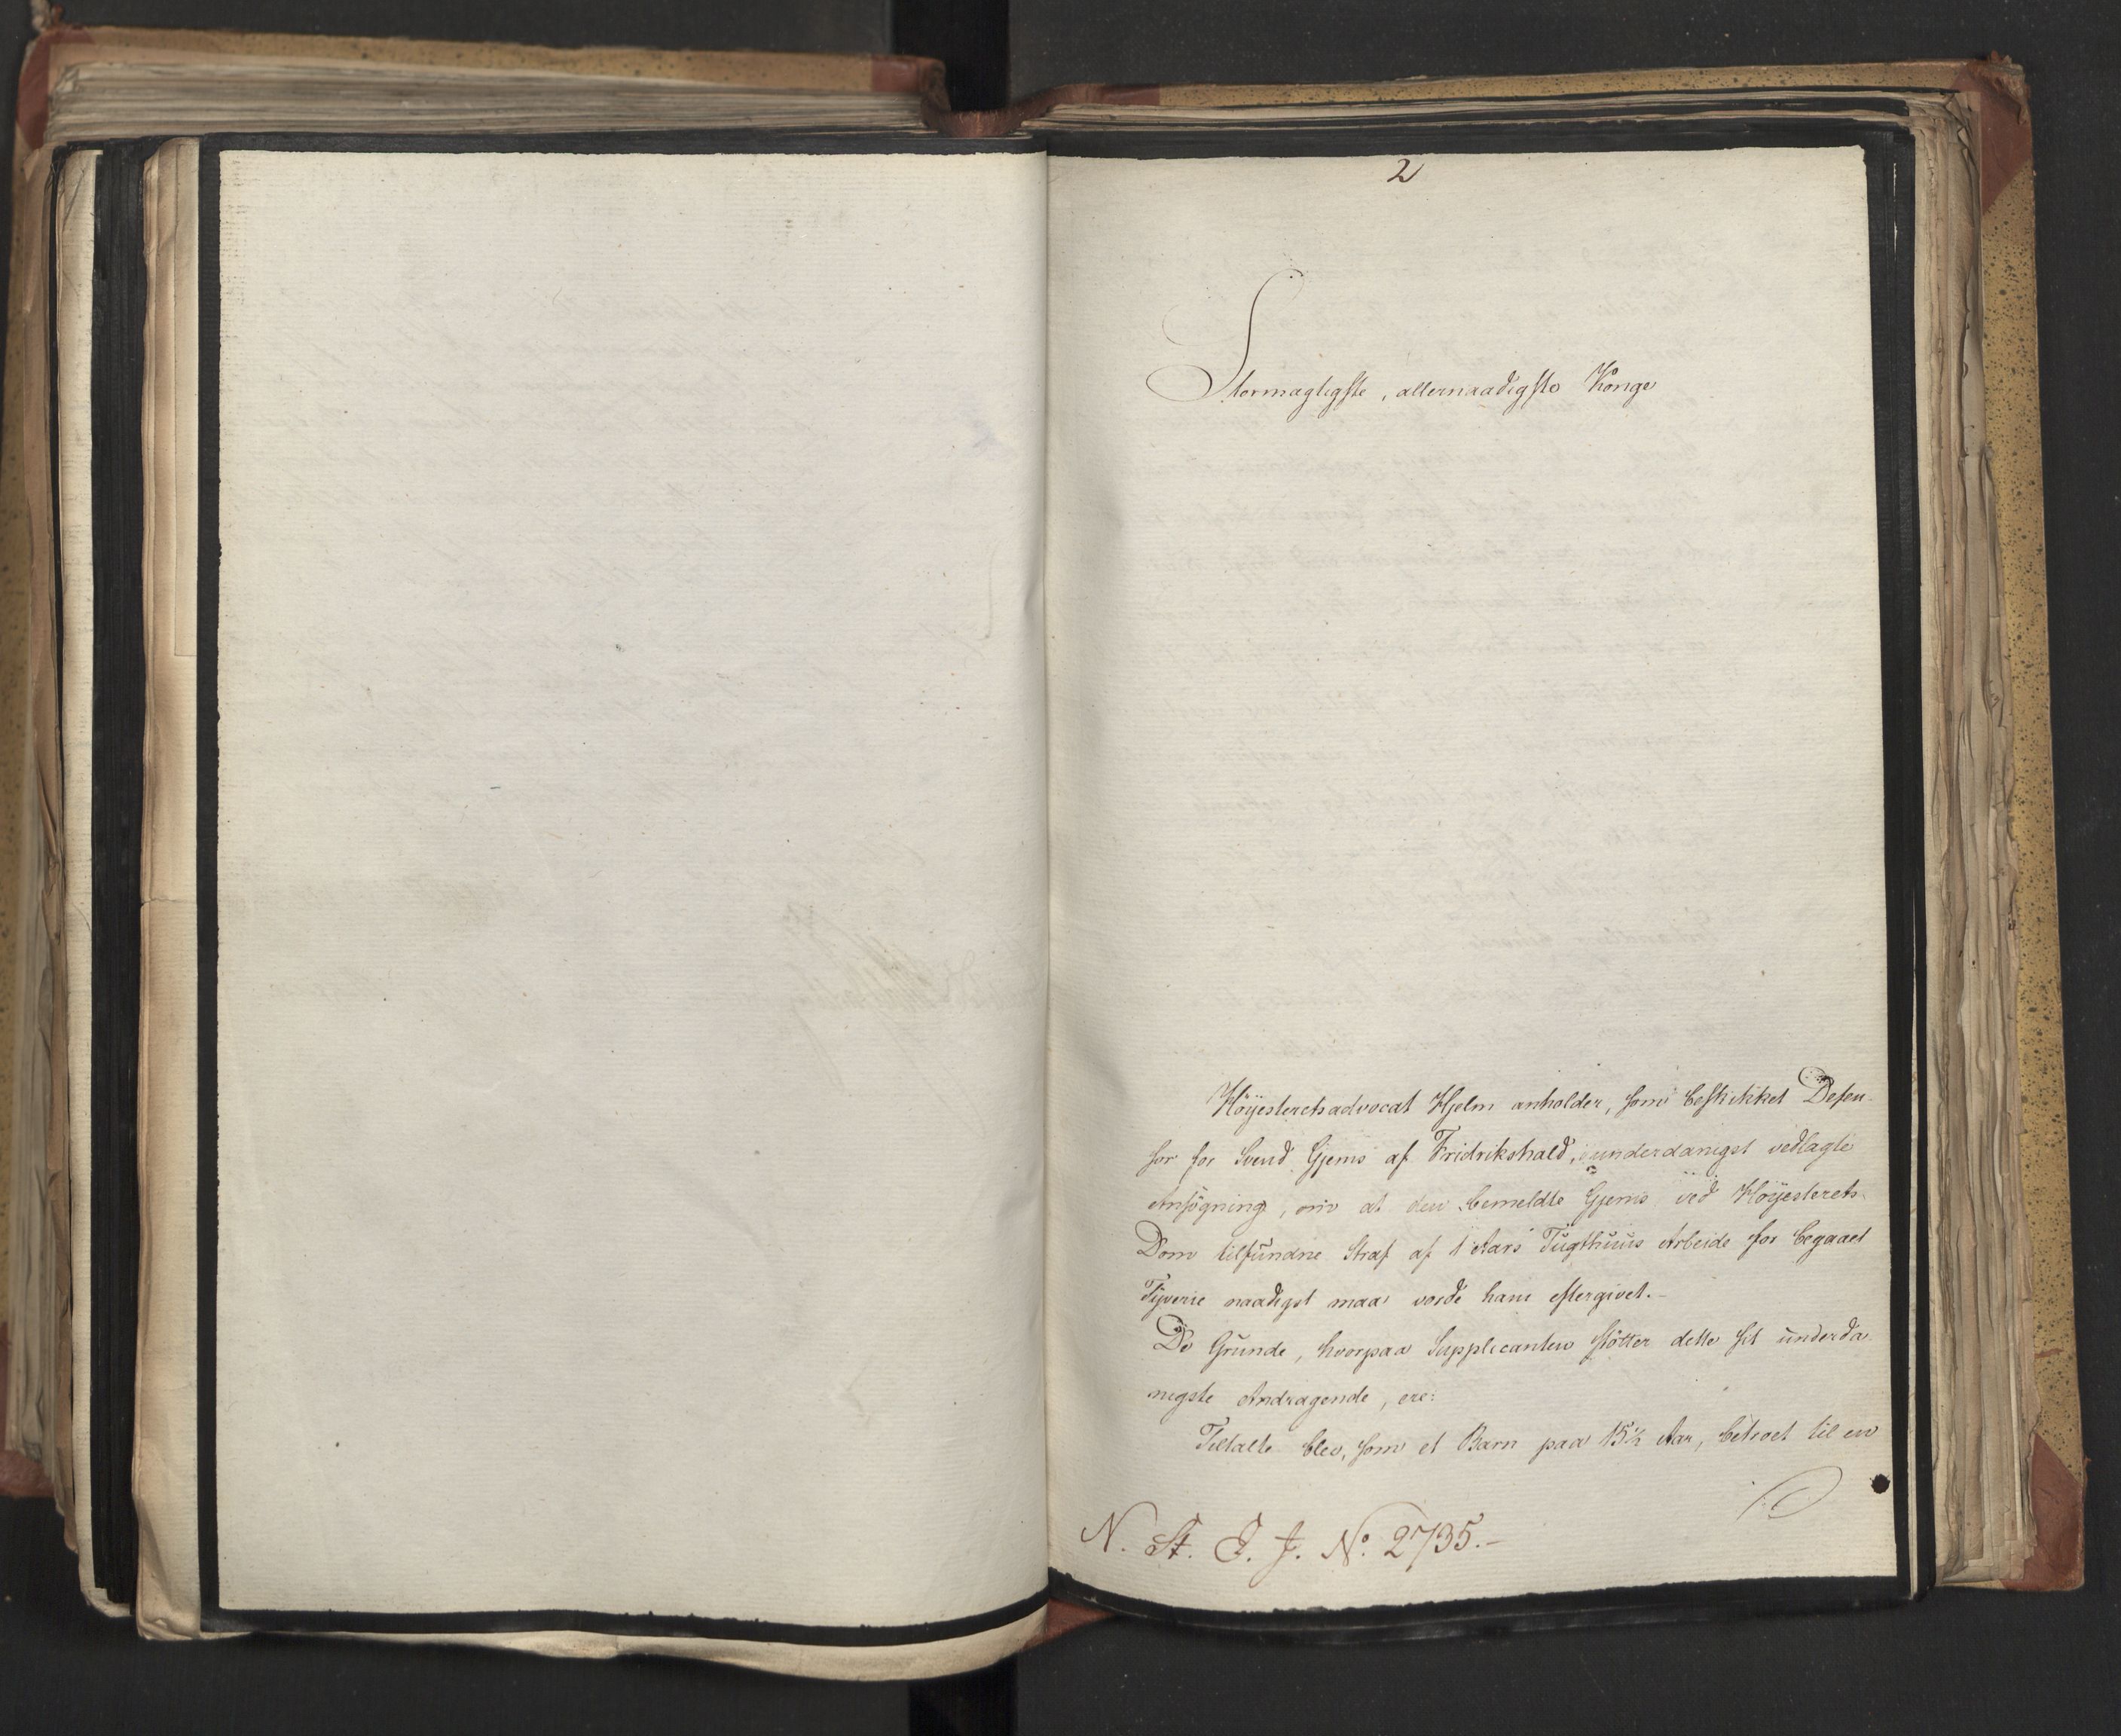 2
Stormægtigste, allernaadigste Konge
Höÿesteretsadvocat Hjelm anholder, som beskikket Defen-
sor for Svend Gjems af Fridrikshald, i underdanigst vedlagte
Ansögning, om at den bemeldte Gjems ved Höÿesterets-
Dom tilfundne Straf af 1 Aars Tügthüüs Arbeide for begaaet
Tÿverie naadigst maa vorde ham eftergivet.-
De Grunde, hvorpaa Supplicanten stötter dette sit underda-
nigste Andragende, ere:
Tiltalte blev, som et Barn paa 15½ Aar, betroet til en
N. St. I. J. No. 2735.-